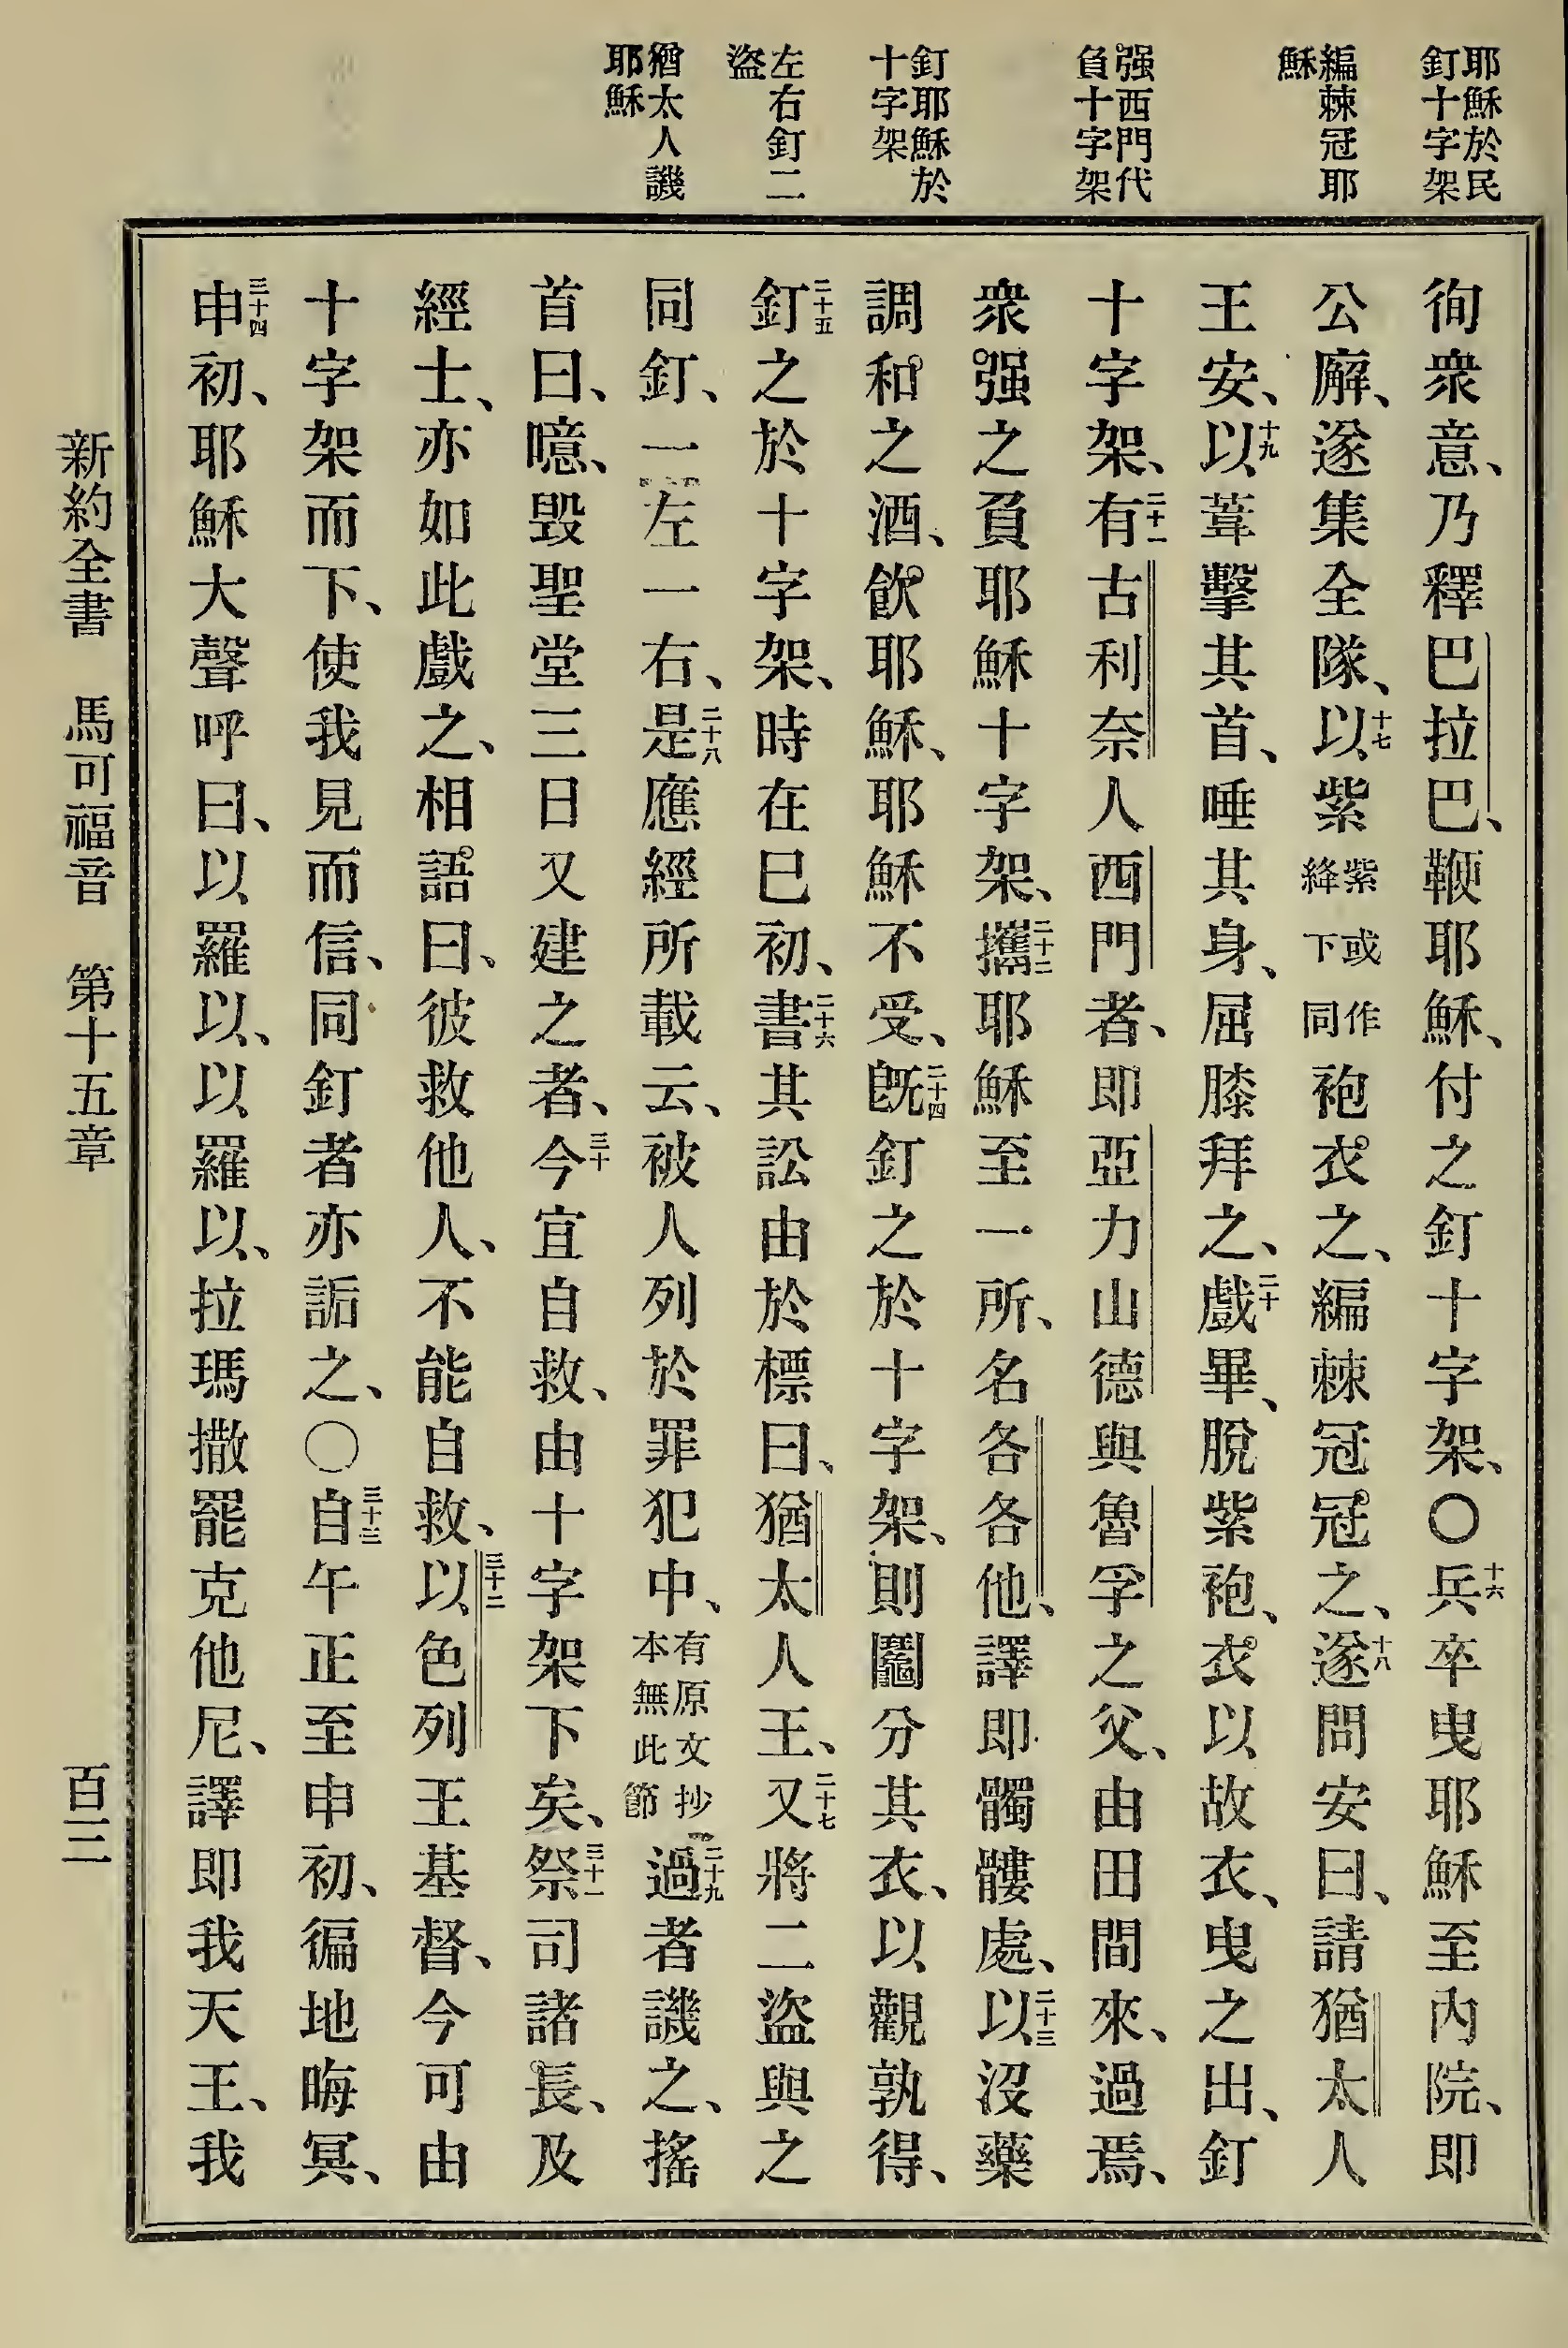 耶穌於民
釘十字架
編棘冠耶
穌
强西門代
負十字架
釘耶穌於
十字架
左右釘二
盜
猶太人譏
耶穌
徇衆意、乃釋巴拉巴、鞭耶穌、付之釘十字架、〇十六兵卒曳耶穌至內院、即
公廨、遂集全隊、十七以紫紫或作絳下同袍衣之、編棘冠冠之、十八遂問安曰、請猶太人
王安、十九以葦擊其首、唾其身、屈膝拜之、二十戲畢、脫紫袍、衣以故衣、曳之出、釘
十字架、二十一有古利奈人西門者、即亞力山德與魯孚之父、由田間來、過焉、
衆强之負耶穌十字架、二十二攜耶穌至一所、名各各他、譯即髑髏處、二十三以沒藥
調和之酒、飲耶穌、耶穌不受、二十四旣釘之於十字架、則鬮分其衣、以觀孰得、
二十五釘之於十字架、時在巳初、二十六書其訟由於標曰、猶太人王、二十七又將二盜與之
同釘、一左一右、二十八是應經所載云、被人列於罪犯中、有原文抄本無此節二十九過者譏之、搖
首曰、噫、毀聖堂三日又建之者、三十今宜自救、由十字架下矣、三十一祭司諸長、及
經士、亦如此戲之、相語曰、彼救他人、不能自救、三十二以色列王基督、今可由
十字架而下、使我見而信、同釘者亦詬之、〇三十三自午正至申初、徧地晦冥、
三十四申初、耶穌大聲呼曰、以羅以、以羅以、拉瑪撒罷克他尼、譯即我天王、我
新約全書 馬可福音 第十五章 百三